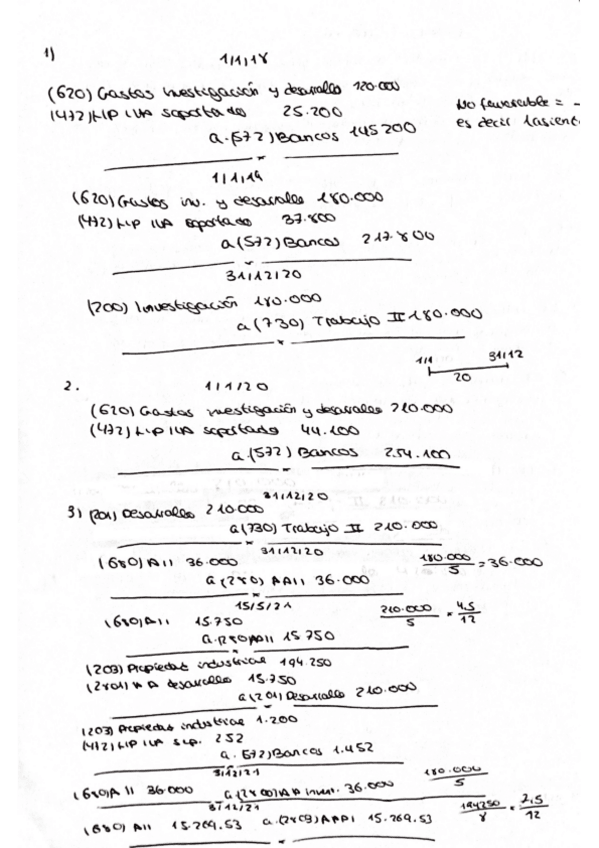 1) 1/1/18
(620) Gastos investigación y desarrollo 120.000
(472) HP IVA soportado 25.200
a (572) Bancos 145200
No favorable =
es decir 1 asient
1/1/19
(620) Gastos inv. y desarrollo 180.000
(472) H.P IVA soportado 37.800
a (572) Bancos 217.800
31/12/20
(200) Investigación 180.000
a (730) Trabajo II 180.000
1/1 31/12
20
2. 1/1/20
(620) Gastos investigación y desarrollo 210.000
(472) H.P IVA soportado 44.100
a (572) Bancos 254.100
31/12/20
3) (201) Desarrollo 210.000
a (730) Trabajo II 210.000
31/12/20
(680) AII 36.000
180.000/5 = 36.000
a (280) AAII 36.000
15/5/21
(680) AII 15.750
210.000/5 × 4,5/12
a (280) AAII 15.750
(203) Propiedad industrial 194.250
(2801) AA desarrollo 15.750
a (201) Desarrollo 210.000
(203) Propiedad industrial 1.200
(472) HP IVA sop. 252
a (572) Bancos 1.452
31/12/21
(680) AII 36.000 a (2800) AA inves. 36.000
180.000/5
31/12/21
(680) AII 15.269.53 a (2803) AAPI 15.269.53
2,5/12